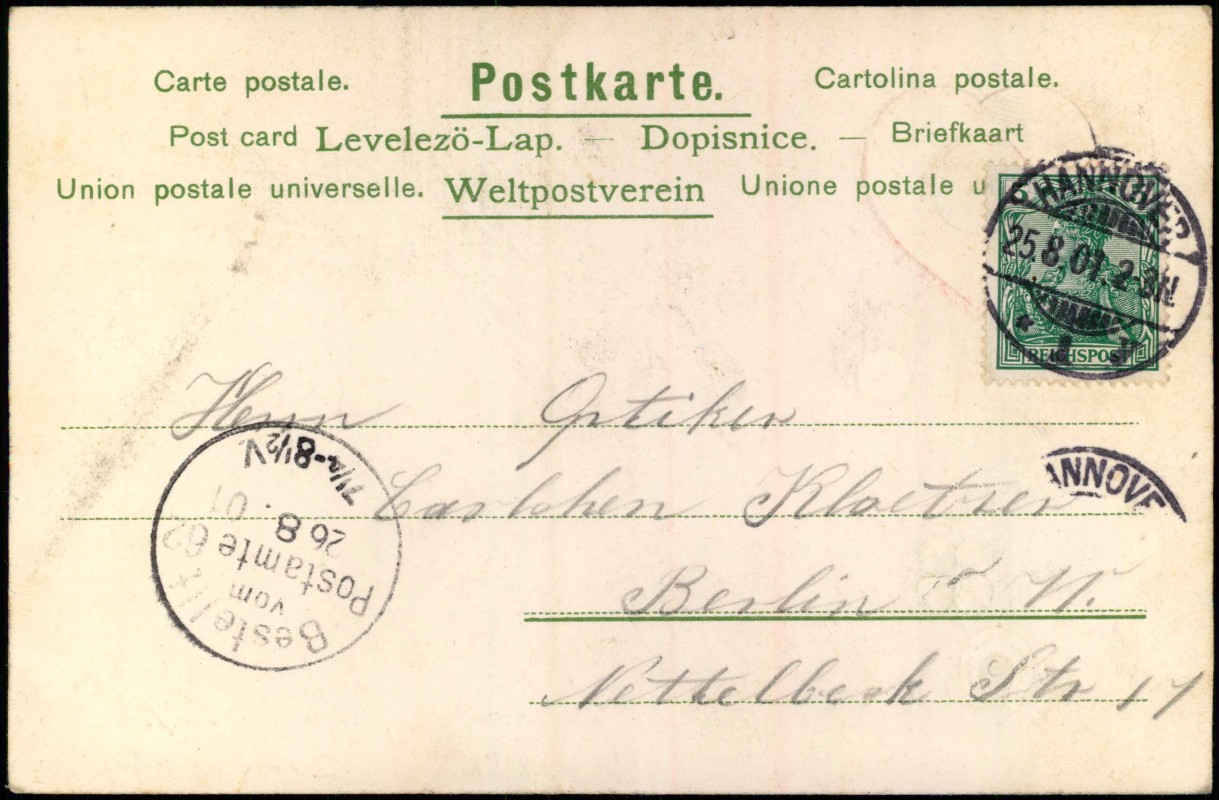 Carte postale. Postkarte. Cartolina postale.
Post card Levelezö-Lap. — Dopisnice. — Briefkaart
Union postale universelle. Weltpostverein Unione postale u
HANNOVER
25.8.01. 2-3N
REICHSPOST
Herrn Optiker
Carlchen Kloetzer
ANNOVE
Berlin W.
Nettelbeck Str 17
Bestellt
vom
Postamte 62
26 8. 01
7½-8½V.